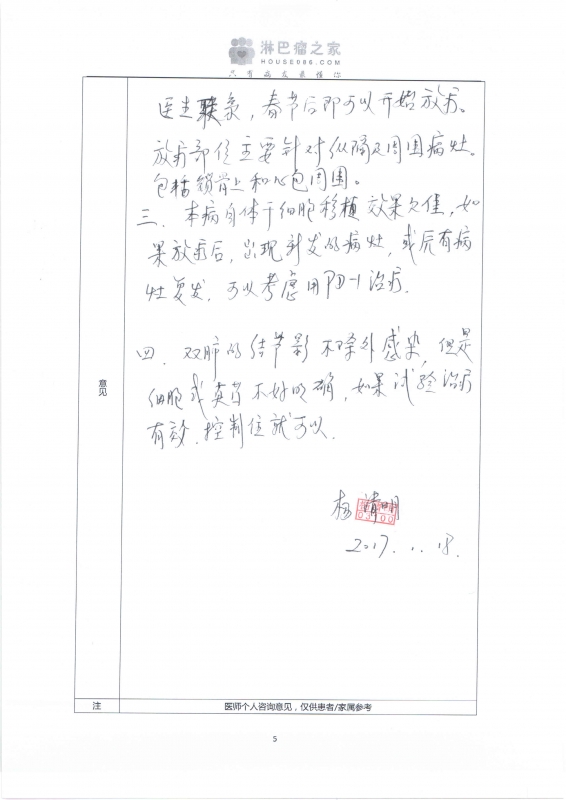 淋巴瘤之家
HOUSE086.COM
只有病友最懂你
医生联系，春节后即可以开始放疗。
放疗部位主要针对纵隔及周围病灶。
包括锁骨上和心包周围。
三、本病自体干细胞移植效果欠佳，如
果放疗后，出现新发的病灶，或原有病
灶复发，可以考虑用PD-1治疗。
四、双肺的结节影不除外感染，但是
细胞或真菌不好明确，如果试验治疗
有效，控制住就可以。
意见
杨 清明
2017.1.18.
注
医师个人咨询意见，仅供患者/家属参考
5